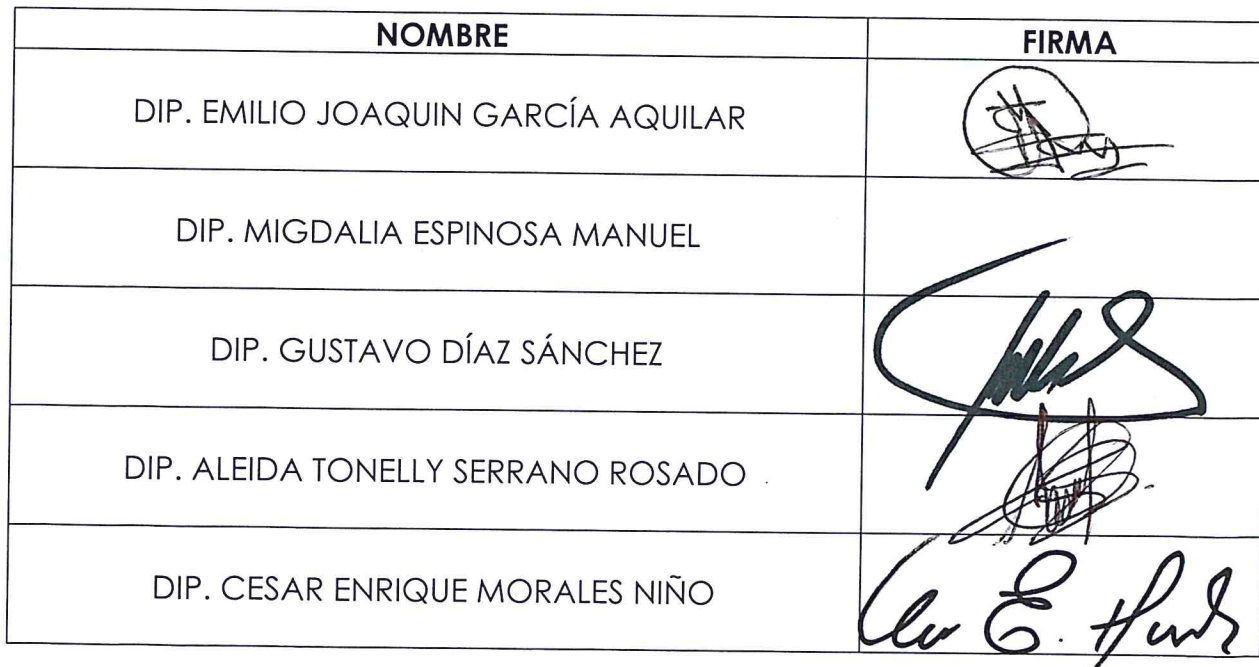 NOMBRE FIRMA
DIP. EMILIO JOAQUIN GARCÍA AQUILAR
DIP. MIGDALIA ESPINOSA MANUEL
DIP. GUSTAVO DÍAZ SÁNCHEZ
DIP. ALEIDA TONELLY SERRANO ROSADO
DIP. CESAR ENRIQUE MORALES NIÑO